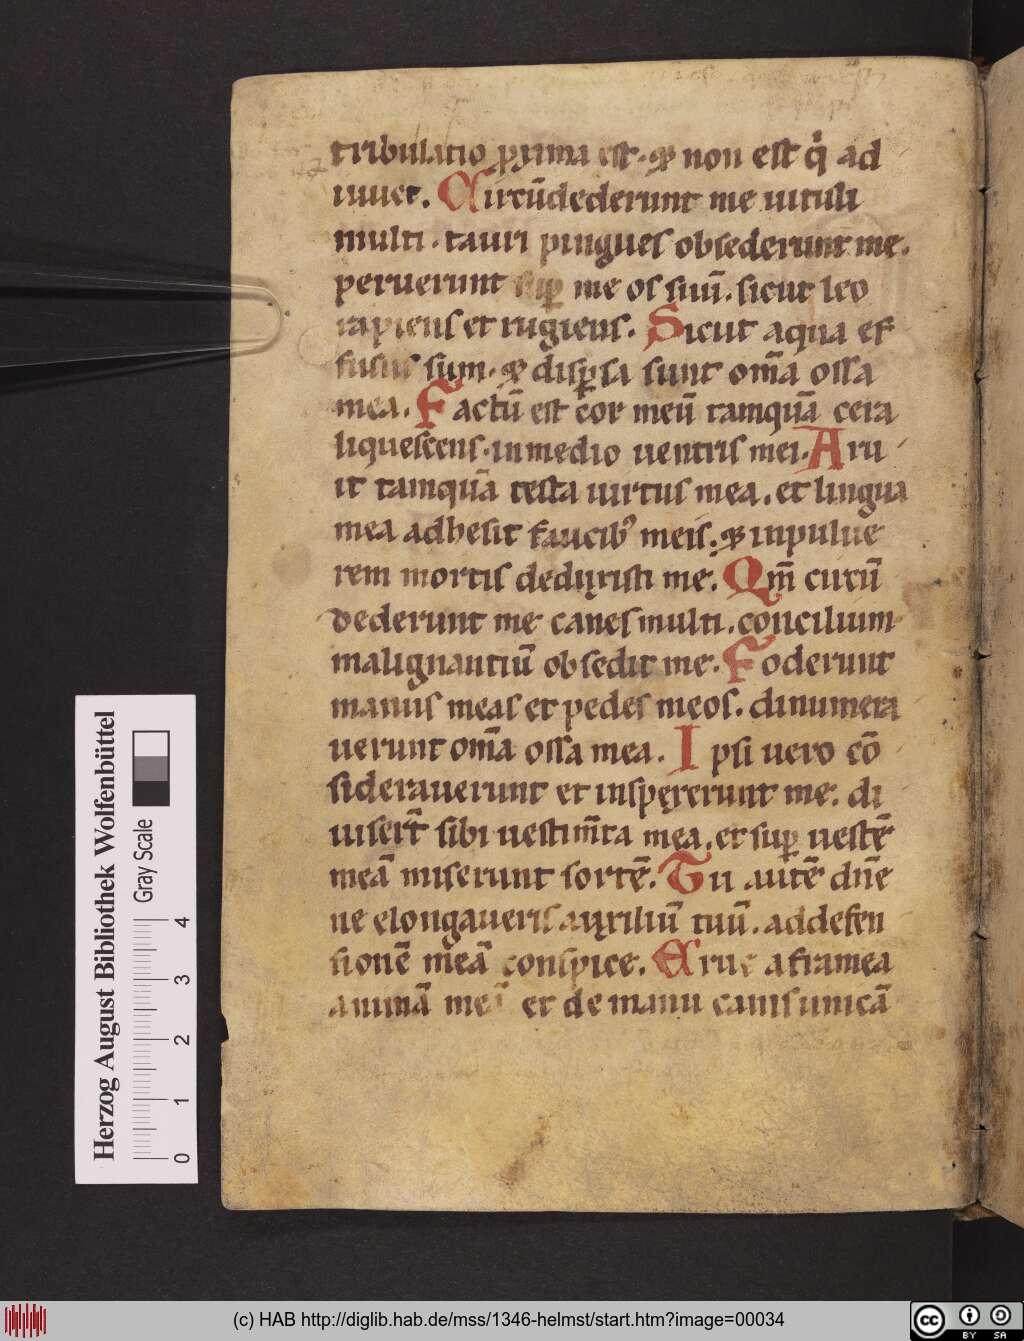 tribulatio pxima est. qͥ non est q̇ ad
iuuet. Circũdederunt me uituli
multi. tauri pingues obsederunt me.
peruerunt suꝑ me os suũ. sicut leo
rapiens et rugiens. Sicut aqua ef
fusus sum. qͥ disꝑsa sunt om̃a ossa
mea. Factũ est cor meũ tamquã cera
liquescens. in medio uentris mei. Aru
it tamquã testa uirtus mea. et lingua
mea adhesit faucibꝰ meis. qͥ inpulue
rem mortis deduxisti me. Qm̃ circũ
dederunt me canes multi. concilium
malignantiũ obsedit me. Foderunt
manus meas et pedes meos. dinumera
uerunt om̃a ossa mea. Ipsi uero cõ
siderauerunt et inspexerunt me. di
uisert̃ sibi uestim̃ta mea. et suꝑ uestẽ
meã miserunt sortẽ. Tu autẽ dñe
ne elongaueris auxiliũ tuũ. ad defen
sionẽ meã conspice. Erue a framea
animã meã et de manu canis unicã
Herzog August Bibliothek Wolfenbüttel
Gray Scale
0 1 2 3 4
(c) HAB http://diglib.hab.de/mss/1346-helmst/start.htm?image=00034
cc BY SA